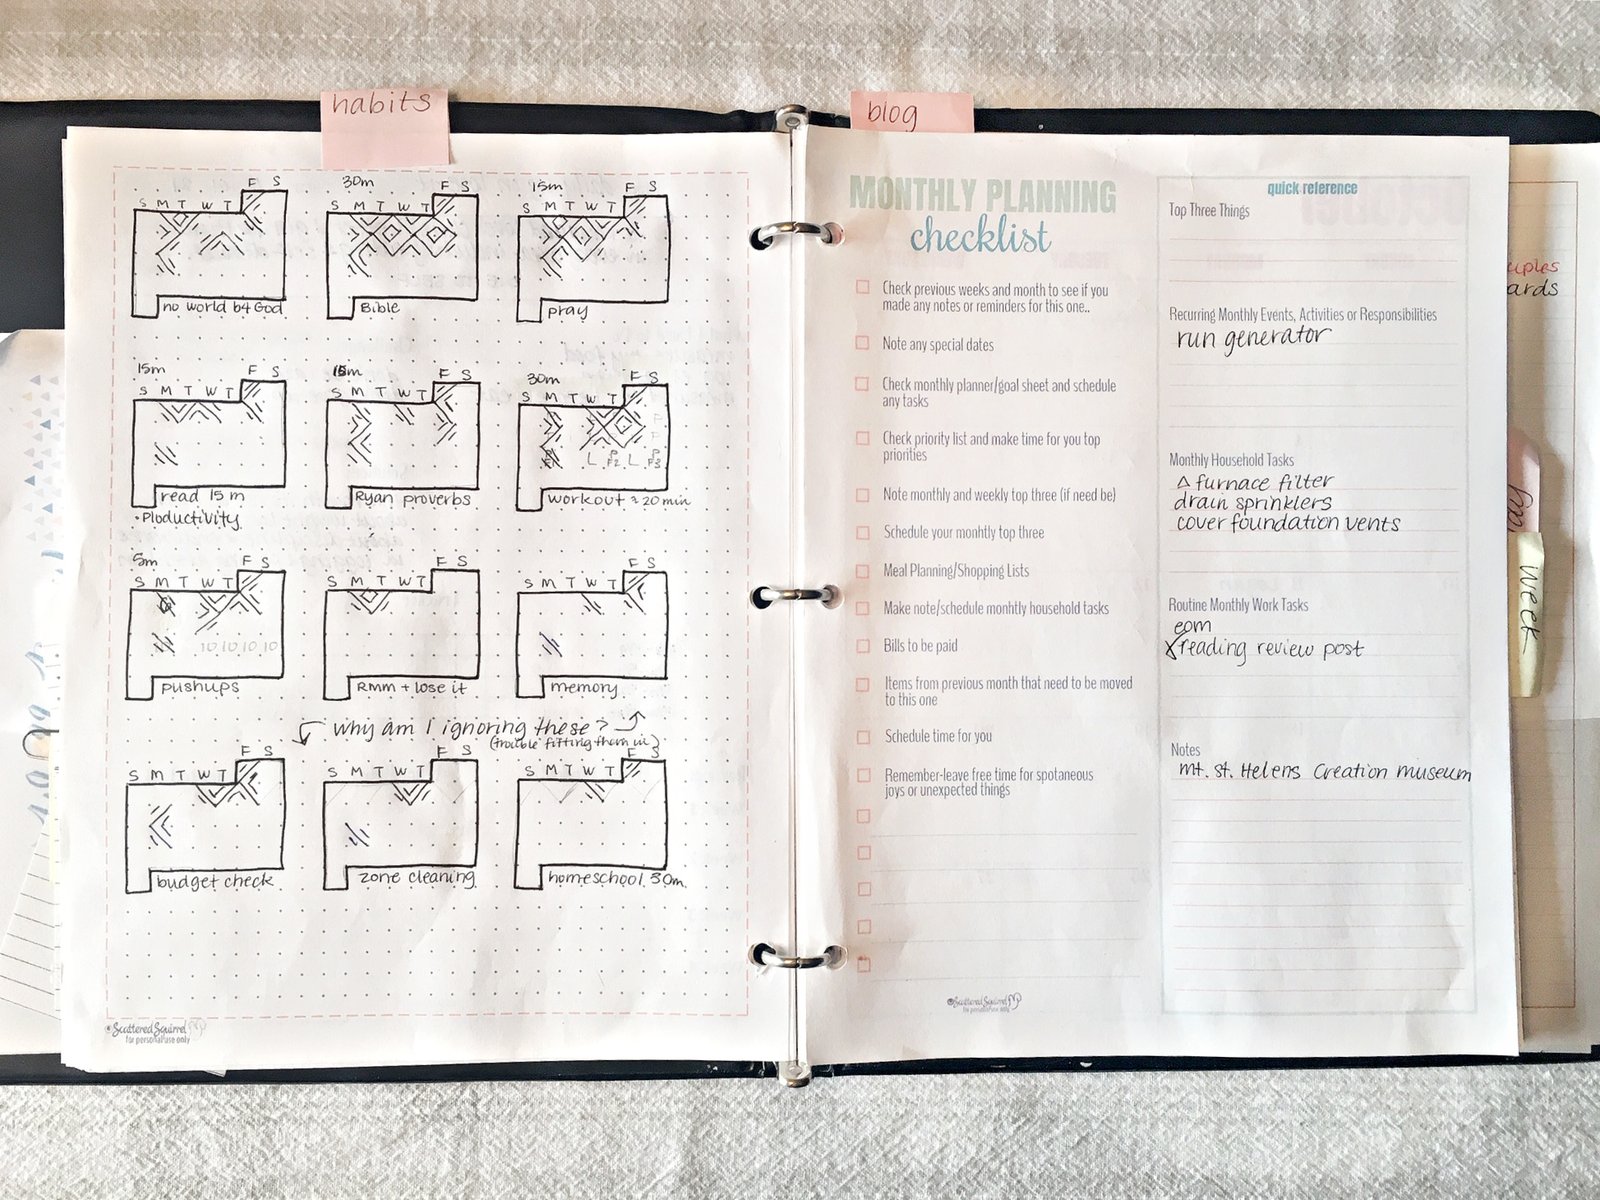 habits
30m
15m
S M T W T F S
S M T W T F S
S M T W T F S
no world b4 God
Bible
pray
15m
15m
30m
S M T W T F S
S M T W T F S
S M T W T F S
L F2 L F3
read 15 m
Ryan proverbs
workout ≥ 20 min
• Ploductivity
5m
S M T W T F S
S M T W T F S
S M T W T F S
10 10 10 10
pushups
RMM + lose it
memory
why am I ignoring these?
(trouble fitting them in)
S M T W T F S
S M T W T F S
S M T W T F S
budget check
zone cleaning
homeschool 30m
©ScatteredSquirrel
for personal use only
blog
MONTHLY PLANNING
checklist
Check previous weeks and month to see if you
made any notes or reminders for this one..
Note any special dates
Check monthly planner/goal sheet and schedule
any tasks
Check priority list and make time for you top
priorities
Note monthly and weekly top three (if need be)
Schedule your monhtly top three
Meal Planning/Shopping Lists
Make note/schedule monhtly household tasks
Bills to be paid
Items from previous month that need to be moved
to this one
Schedule time for you
Remember-leave free time for spotaneous
joys or unexpected things
©ScatteredSquirrel
for personal use only
quick reference
Top Three Things
Recurring Monthly Events, Activities or Responsibilities
run generator
Monthly Household Tasks
Δ furnace filter
drain sprinklers
cover foundation vents
Routine Monthly Work Tasks
eom
reading review post
Notes
mt. St. Helens Creation museum
uples
ards
Week